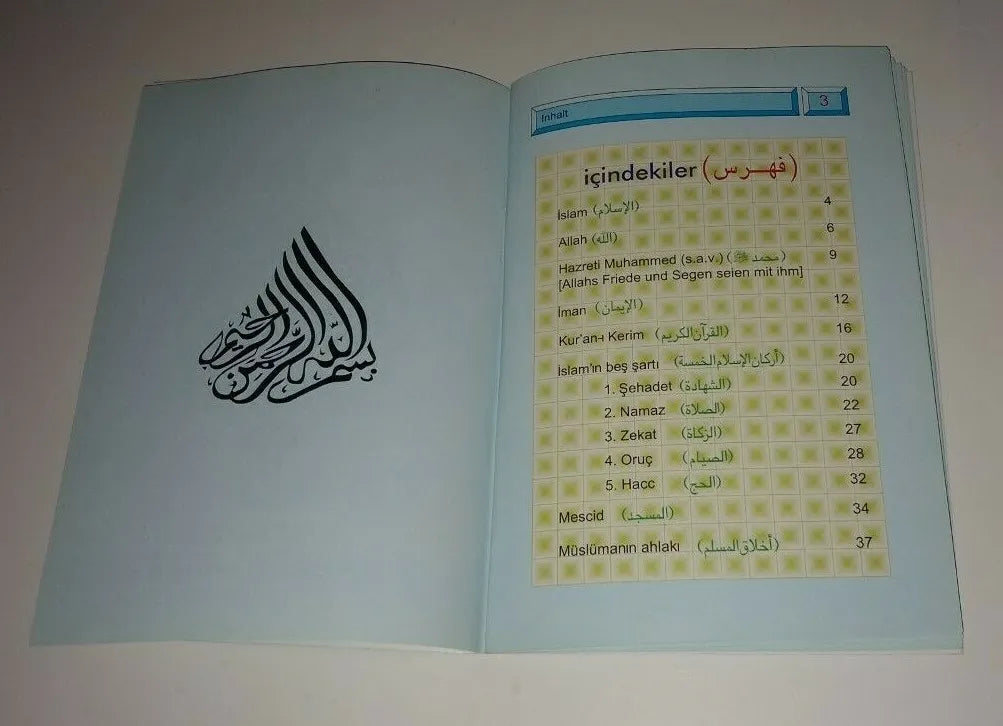 بسم الله الرحمن الرحيم
Inhalt 3
içindekiler (فهرس)
İslam (الإسلام) 4
Allah (الله) 6
Hazreti Muhammed (s.a.v.) (محمد ﷺ) 9
[Allahs Friede und Segen seien mit ihm]
İman (الإيمان) 12
Kur'an-ı Kerim (القرآن الكريم) 16
İslam'ın beş şartı (أركان الإسلام الخمسة) 20
1. Şehadet (الشهادة) 20
2. Namaz (الصلاة) 22
3. Zekat (الزكاة) 27
4. Oruç (الصيام) 28
5. Hacc (الحج) 32
Mescid (المسجد) 34
Müslümanın ahlakı (أخلاق المسلم) 37